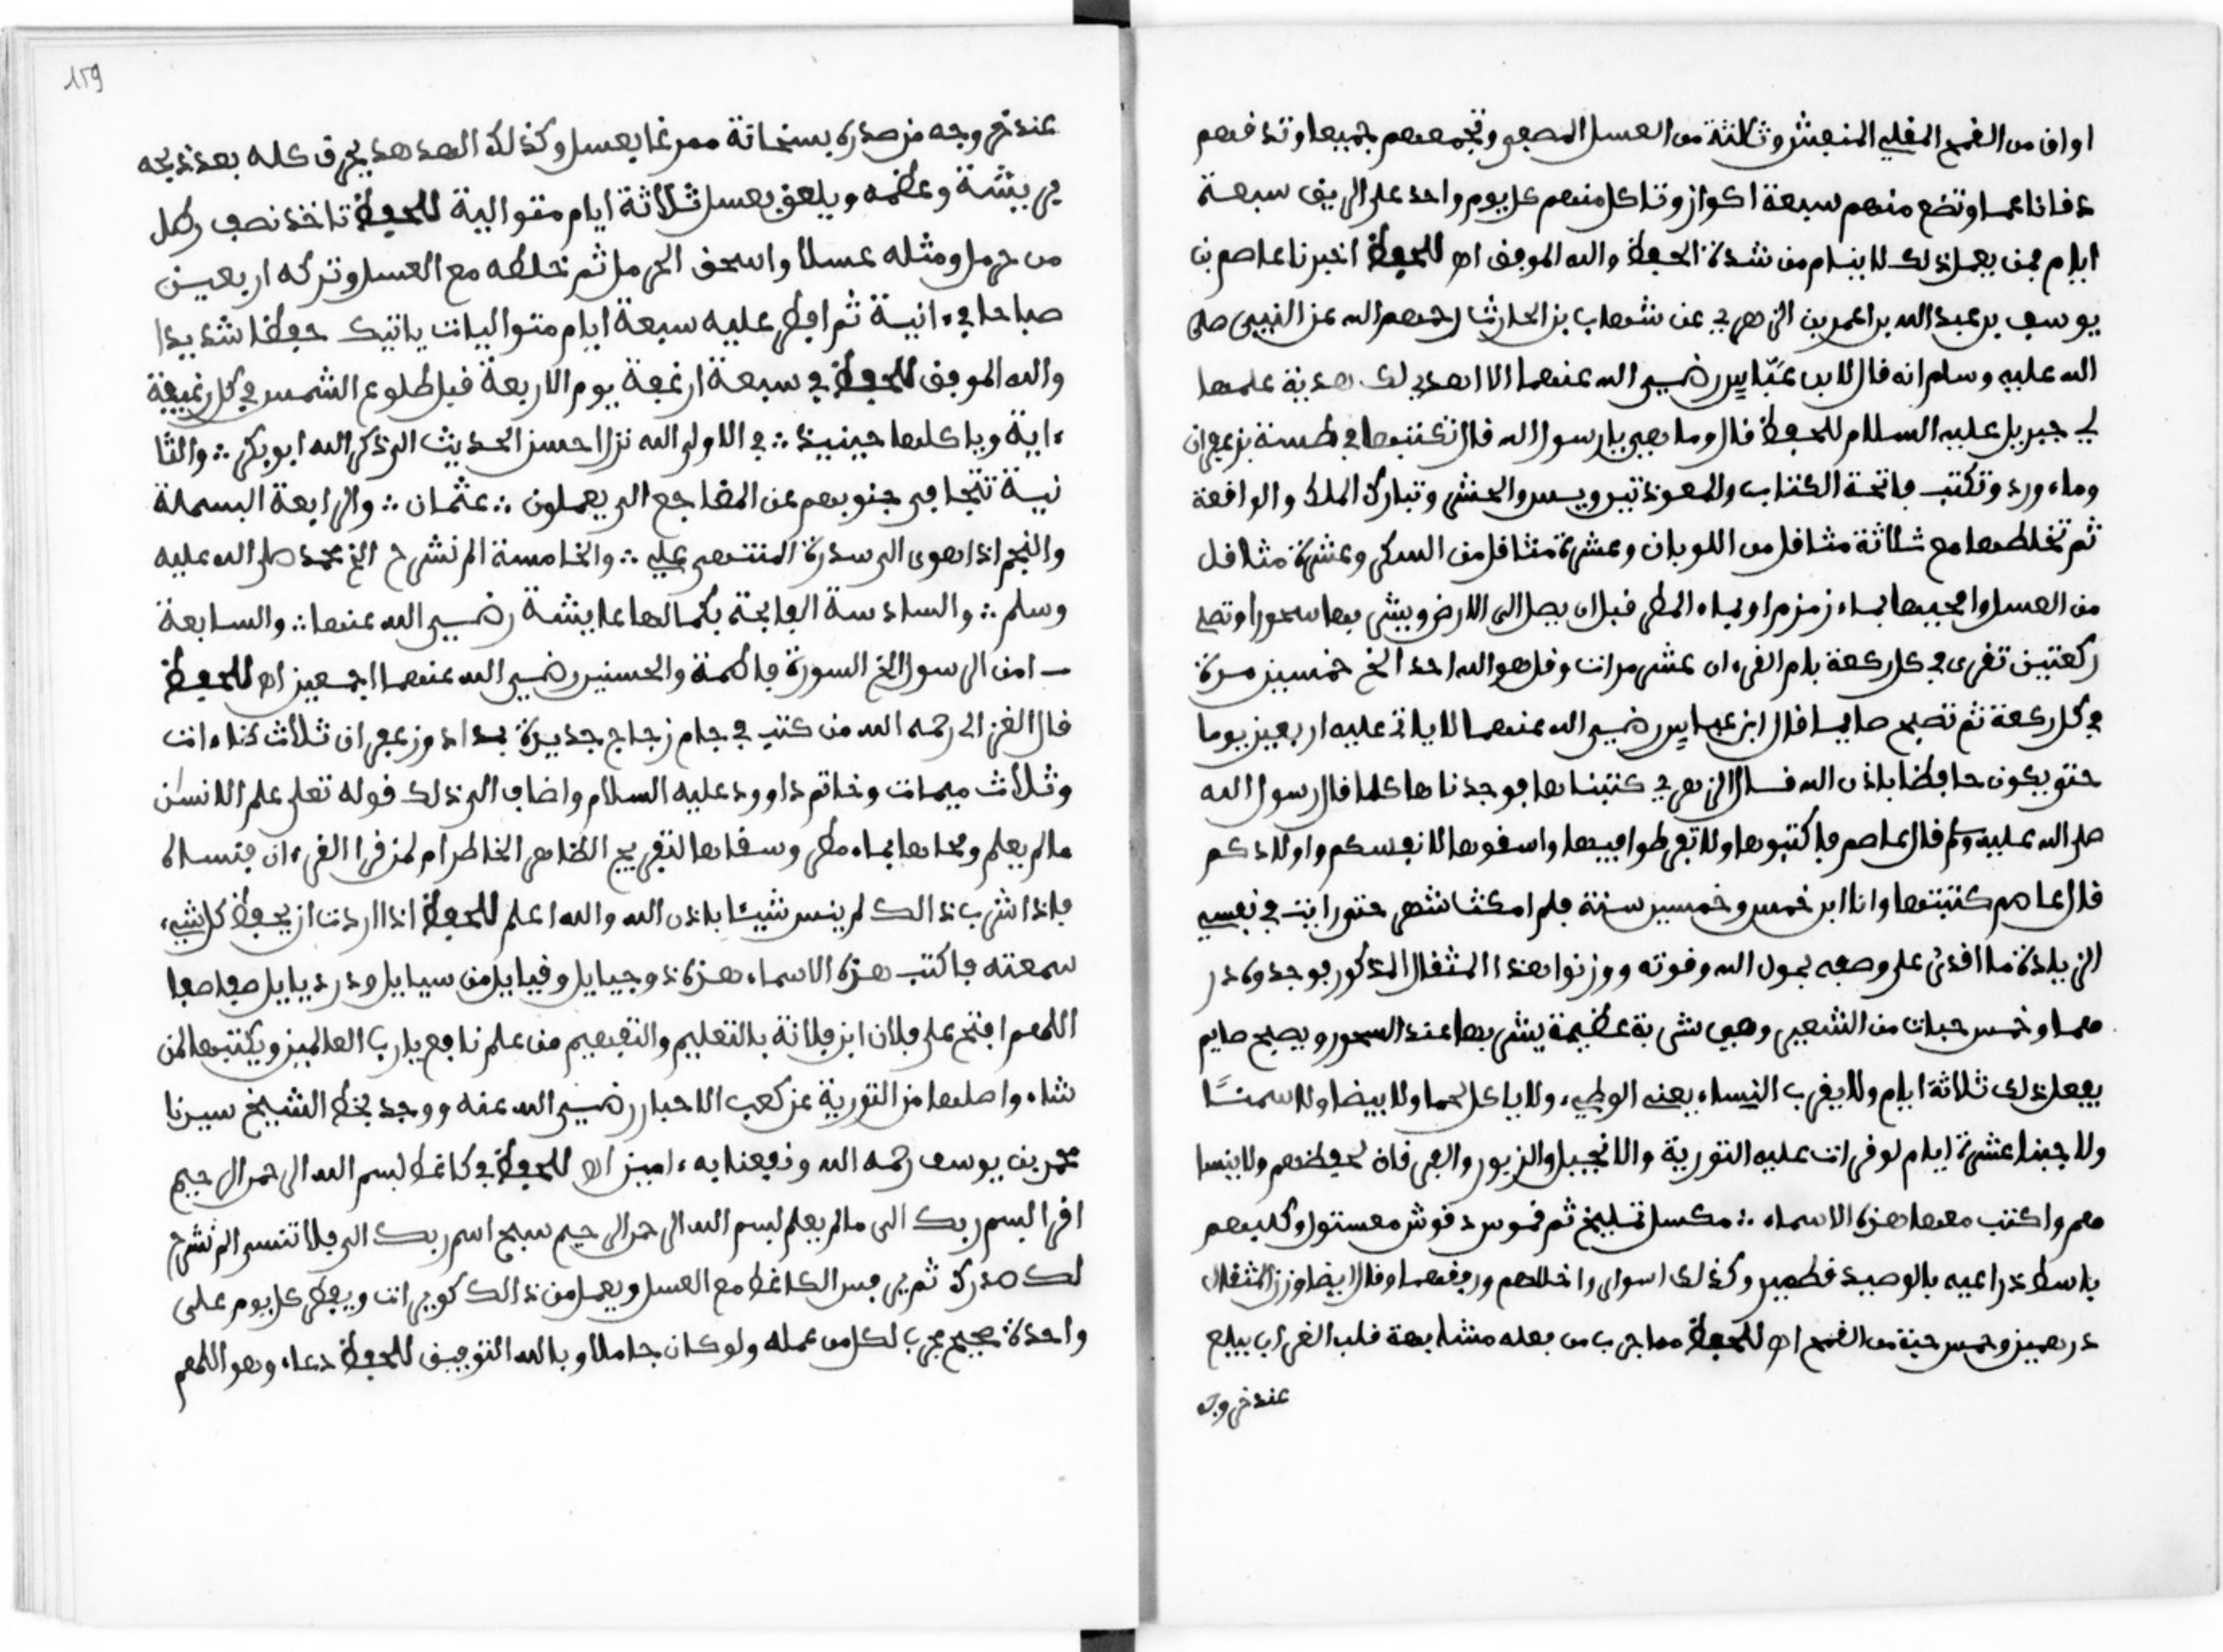 اواق من القمح المقلي المنعش وثلاثة من العسل المصفى وتجمعهم جميعا وتدقهم
دقا ناعما وتضع منهم سبعة اكواز وتاكل منهم كل يوم واحد على الريق سبعة
ايام فمن يعمل ذلك لا ينام من شدة الحفظ والله الموفق اه للحفظ اخبرنا عاصم بن
يوسف بن عبد الله بن عمر بن الزهري عن شهاب بن الحارث رحمهم الله عن النبيى صلى
الله عليه وسلم انه قال لابن عباس رضي الله عنهما الا اهدي لك هدية علمها
لي جبريل عليه السلام للحفظ قال وما هي يا رسول الله قال تكتبها في طسة بزعفران
وماء ورد وتكتب فاتحة الكتاب والمعوذتين ويس والحشر وتبارك الملك والواقعة
ثم تخلطها مع ثلاثة مثاقل من اللوبان وعشرة مثاقل من السكر وعشرة مثاقل
من العسل وامحيها بماء زمزم او بماء المطر قبل ان يصل الى الارض ويشربها سحورا وتصلي
ركعتين تقرى في كل ركعة بام القرءان عشر مرات وقل هو الله احد الخ خمسين مرة
في كل ركعة ثم تصبح صايما قال ابن عباس رضي الله عنهما لا ياتي عليه اربعين يوما
حتى يكون حافظا باذن الله قال الزهري كتبناها فوجدناها كما قال رسول الله
صلى الله عليه وسلم قال عاصم فاكتبوها ولا تفرطوا فيها واسقوها لانفسكم واولادكم
قال عاصم كتبتها وانا ابن خمس وخمسين سنة فلم امكث شهر حتى رايت في نفسي
الزيادة ما اقدر على وصفه بحول الله وقوته ووزنوا هذا المثقال المذكور فوجدوه در
هما وخمس حبات من الشعير وهي شربة عظيمة يشربها عند السحور ويصبح صايم
يفعل ذلك ثلاثة ايام ولا يقرب النساء يعني الوطيء ولا ياكل لحما ولا بيضا ولا سمنًا
ولا جبنا عشرة ايام لو قرات عليه التورية والانجيل والزبور والفرقان لحفظهم ولا ينسا
هم واكتب معها هذه الاسماء ∴ مكسل تمليخ ثم قموس دقوش معستول وكلبهم
باسط ذراعيه بالوصيد قطمير وكذلك اسول واخلهم ورفعهما وقال ايضا وزن المثقال
درهمين وخمس حبة من القمح اه للحفظ مما جرب من فعله مشابهة قلب الغراب يبلع
عند خروجه
عند خروجه من صدره بسخانة ممرغا بعسل وكذلك الهدهد يحرق كله بعد ذبحه
بريشة وعظمه ويلعق بعسل ثلاثة ايام متوالية للحفظ تاخذ نصف رطل
من حرمل ومثله عسلا واسحق الحرمل ثم خلطه مع العسل وتركه اربعين
صباحا في ءانية ثم افطر عليه سبعة ايام متواليات ياتيك حفظا شديدا
والله الموفق للحفظ في سبعة ارغفة يوم الاربعة قبل طلوع الشمس في كل رغيفة
ءاية وياكلها حينيذ ∴ في الاولى الله نزل احسن الحديث الى ذكر الله ابو بكر ∴ والثا
نية تتجافى جنوبهم عن المضاجع الى يعملون ∴ عثمان ∴ والرابعة البسملة
والنجم اذا هوى الى سدرة المنتهى علي ∴ والخامسة الم نشرح الخ محمد صلى الله عليه
وسلم ∴ والسادسة الفاتحة بكمالها عايشة رضي الله عنها ∴ والسابعة
ـ امن الرسول الخ السورة فاطمة والحسنين رضي الله عنهما اجمعين اه للحفظ
قال الغزالي رحمه الله من كتب في جام زجاج جديدة بمداد وزعفران ثلاث هاءات
وثلاث ميمات وخاتم داوود عليه السلام واضاف الى ذلك قوله تعلى علم الانسن
مالم يعلم ومحاها بماء مطر وسقاها لتفريج الظاهر الخاطر ام لمن قرا القرءان فنساه
فاذا شرب ذالك لم ينس شيئا باذن الله والله اعلم للحفظ اذا اردت ان يحفظ كل شيء
سمعته فاكتب هذه الاسماء هذه ذوجيايل وفيايل من سيايل ودرديايل صفا صفا
اللهم افتح على فلان ابن فلانة بالتعليم والتفهيم من علم نافع يا رب العالمين ويكتبها لمن
شاء واصلها من التورية عن كعب الاحبار رضي الله عنه ووجد بخط الشيخ سيدنا
محمد بن يوسف رحمه الله ونفعنا به ءامين اه للحفظ في كاغط بسم الله الرحمن الرحيم
اقرا باسم ربك الى مالم يعلم بسم الله الرحمن الرحيم سبح اسم ربك الى فلا تنسى الم نشرح
لك صدرك ثم يرفس الكاغط مع العسل ويعمل من ذالك كويرات ويفطر كل يوم على
واحدة صحيح مجرب لكل من عمله ولو كان جاملا وبالله التوفيق للحفظ دعاء وهو اللهم